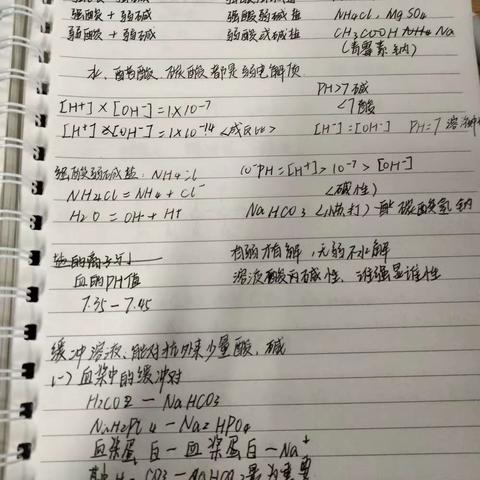 强酸 + 弱碱 强酸弱碱盐 NH4Cl, MgSO4
弱酸 + 弱碱 弱酸弱碱盐 CH3COOH Na
(青霉素钠)
水、醋酸、碳酸都是弱电解质
PH>7 碱
<7 酸
[H+] × [OH-] = 1×10-7
[H+] × [OH-] = 1×10-14 <成反比> [H-] = [OH-] PH=7 溶液
强酸弱碱盐: NH4Cl 10-PH = [H+] > 10-7 > [OH-]
NH4Cl = NH4 + Cl- <碱性>
H2O = OH + H+ NaHCO3 (小苏打) 碳酸氢钠
血的PH值 有弱才有解, 无弱不水解
7.35 — 7.45 溶液酸丙碱性, 谁强显谁性
缓冲溶液、能对抗外来少量酸、碱
(一) 血浆中的缓冲对
H2CO2 — NaHCO3
NaH2PO4 — Na2HPO4
血浆蛋白 — 血浆蛋白 — Na+
其中 H2CO3 — NaHCO3 最为重要